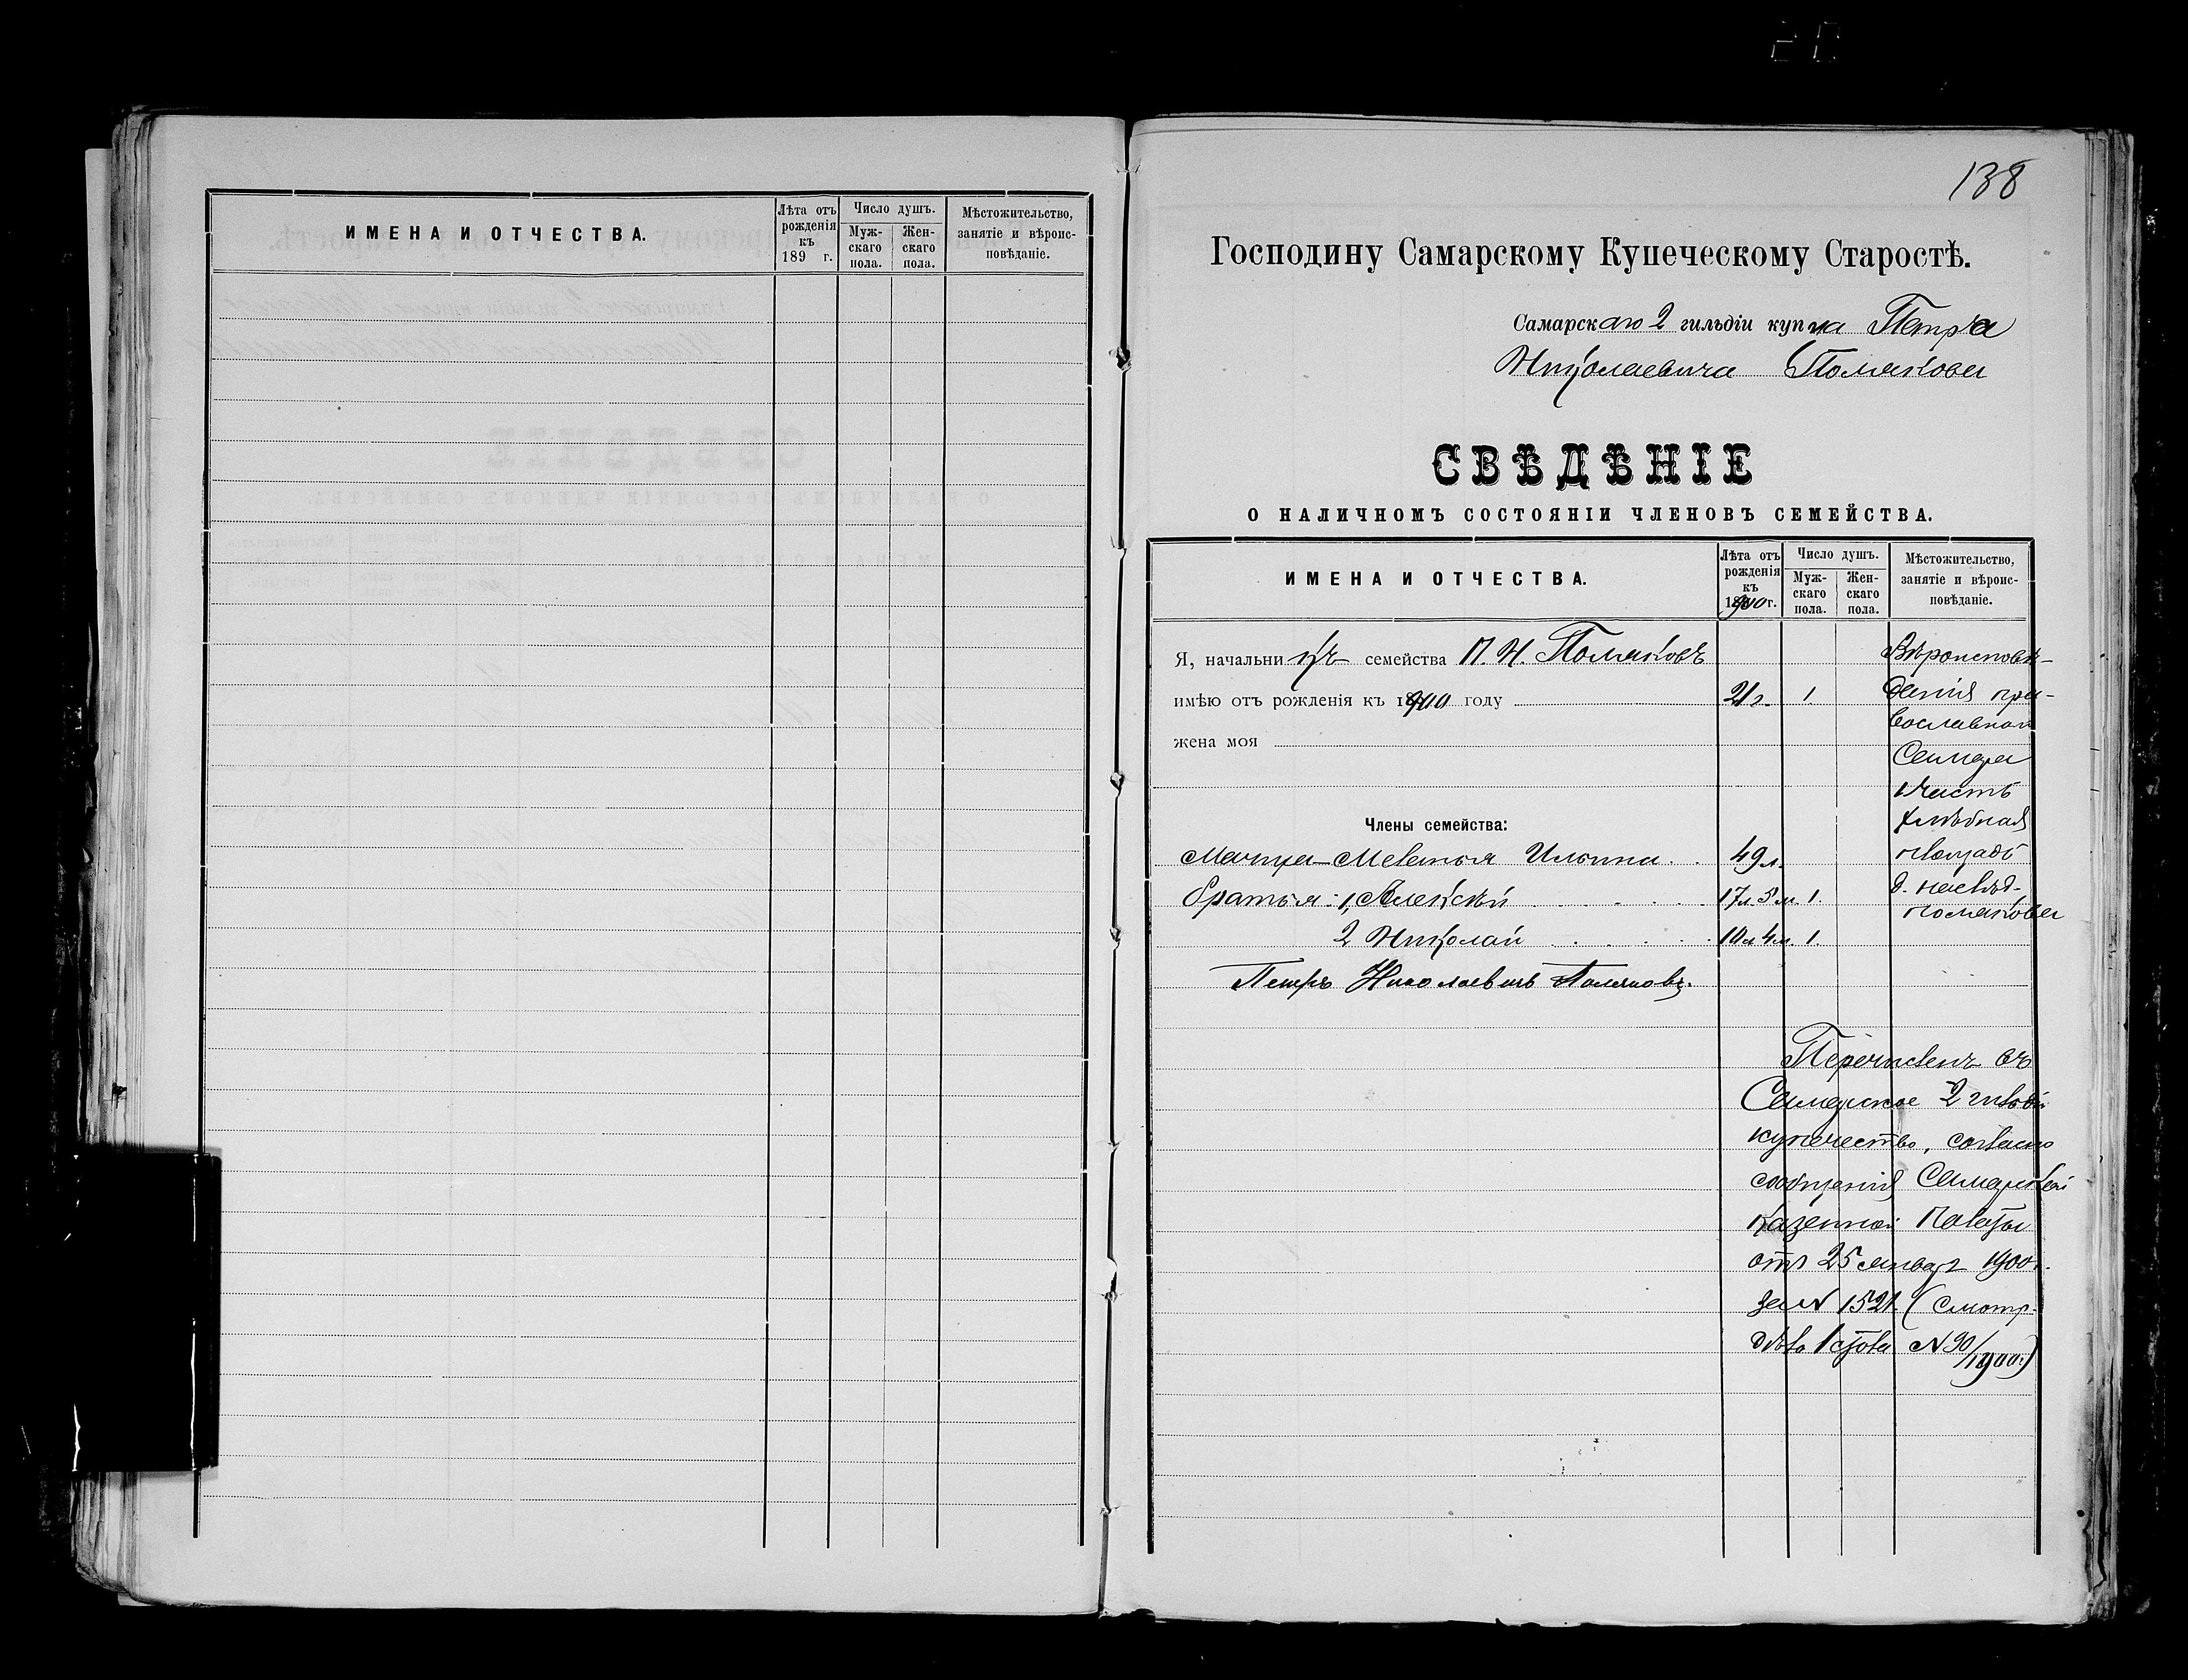 ИМЕНА И ОТЧЕСТВА.
Лѣта отъ рожденія къ 189 г.
Число душъ.
Муж-скаго пола.
Жен-скаго пола.
Мѣстожительство, занятіе и вѣроис-повѣданіе.
138
Господину Самарскому Купеческому Старостѣ.
Самарскаго 2 гильдіи купца Петра
Николаевича Полякова
СВѢДѢНІЕ
О НАЛИЧНОМЪ СОСТОЯНІИ ЧЛЕНОВЪ СЕМЕЙСТВА.
ИМЕНА И ОТЧЕСТВА.
Лѣта отъ рожденія къ 1900 г.
Число душъ.
Муж-скаго пола.
Жен-скаго пола.
Мѣстожительство, занятіе и вѣроис-повѣданіе.
Я, начальникъ семейства П. Н. Поляковъ
имѣю отъ рожденія къ 1900 году 21 г. 1.
жена моя
Вѣроисповѣ-
данія пра-
вославнаго
Самара
1 часть
Хлѣбная
площадь
д. наслѣд.
Полякова
Члены семейства:
Мачиха Меланья Ильина 49 л.
братья: 1, Алексѣй 17 л. 5 м. 1.
2 Николай 10 л 4 м. 1.
Петръ Николаевичъ Поляковъ.
Перечисленъ въ
Самарское 2 гильдіи
купечество, согласно
сообщенія Самарской
Казенной Палаты
отъ 25 января 1900 г.
за N 1521. (Смотр.
дѣло 1 стола N 90/1900 г.)